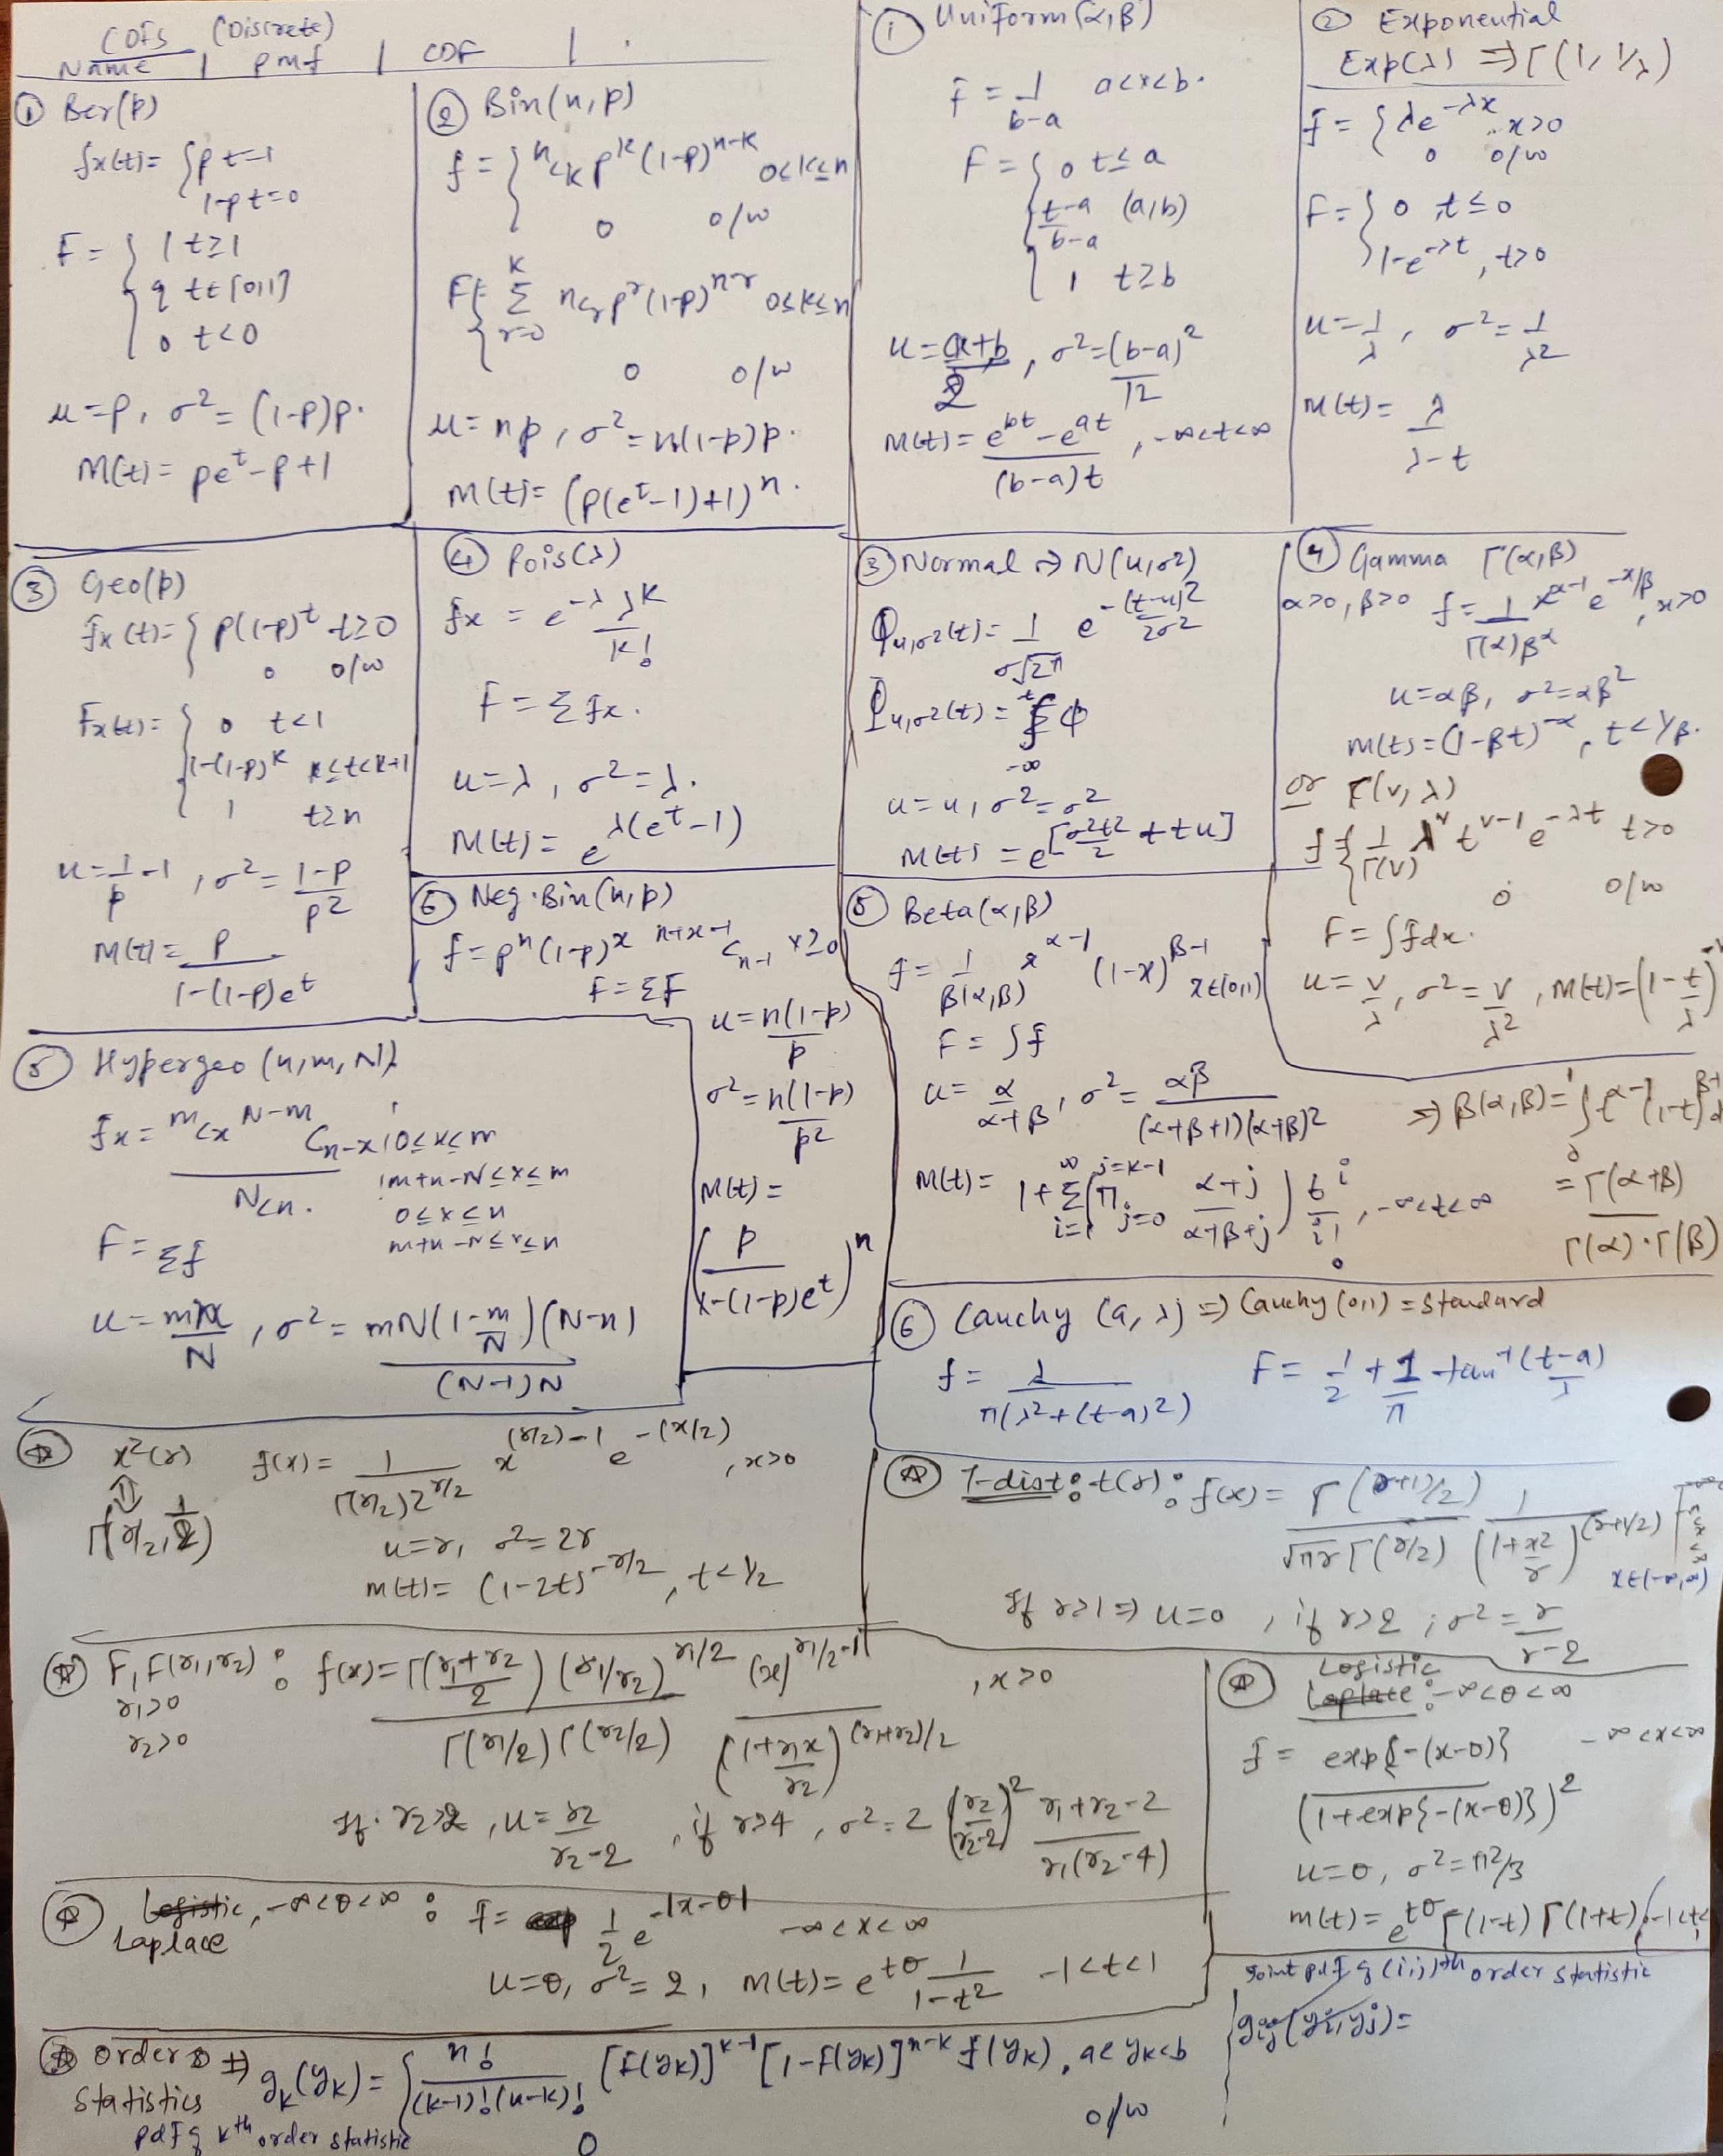 CDFs (Discrete)
Name | pmf | CDF |
① Ber(p)
fx(t)= { p t=1
1-p t=0
F = { 1 t≥1
q t∈[0,1]
0 t<0
u=p, σ² = (1-p)p.
M(t)= pe^t-p+1
② Bin(n,p)
f = { n_{C_K} p^k (1-p)^{n-K} 0≤k≤n
0 o/w
F= { Σ_{r=0}^{K} n_{C_r} p^r (1-p)^{n-r} 0≤k≤n
0 o/w
u= np, σ²= n(1-p)p.
M(t)= (p(e^t-1)+1)^n.
③ Geo(p)
fx(t)= { p(1-p)^t t≥0
0 o/w
Fx(t)= { 0 t<1
1-(1-p)^k k≤t<k+1
1 t≥n
u=1/p -1, σ² = (1-p)/p²
M(t)= p/(1-(1-p)e^t)
④ Pois(λ)
fx = e^{-λ} λ^k/k!
F = Σ fx.
u=λ, σ²=λ.
M(t)= e^{λ(e^t-1)}
⑥ Neg.Bin(n,p)
f=p^n (1-p)^x ^{n+x-1}C_{n-1} x≥0
F=ΣF
u= n(1-p)/p
σ²= n(1-p)/p²
M(t)=
(p/(x-(1-p)e^t))^n
⑤ Hypergeo (n,m,N)
fx = ^mC_x ^{N-m}C_{n-x} / ^NC_n. , 0≤x≤m
, m+n-N≤x≤m
0≤x≤n
m+n-N≤x≤n
F= Σf
u= mn/N, σ² = mN(1-m/N)(N-n)/(N-1)N
① Uniform(α,β)
f = 1/(b-a) a<x<b.
F = { 0 t≤a
(t-a)/(b-a) (a,b)
1 t≥b
u=(a+b)/2, σ²=(b-a)²/12
M(t)= (e^{bt}-e^{at})/((b-a)t), -∞<t<∞
② Exponential
Exp(λ) ⇒ Γ(1, 1/λ)
f = { λe^{-λx} x>0
0 o/w
F= { 0 t≤0
1-e^{-λt}, t>0
u=1/λ, σ²=1/λ²
M(t)= λ/(λ-t)
③ Normal ⇒ N(u,σ²)
φ_{u,σ²}(t)= 1/(σ√2π) e^{-(t-u)²/2σ²}
Φ_{u,σ²}(t)= ∫_{-∞}^{t} φ
u=u, σ²=σ²
M(t) = e^{[σ²t²/2 + tu]}
④ Gamma Γ(α,β)
α>0, β>0 f= 1/(Γ(α)β^α) x^{α-1} e^{-x/β}, x>0
u=αβ, σ²=αβ²
M(t)=(1-βt)^{-α}, t<1/β.
or Γ(v,λ)
f= { 1/Γ(v) λ^v t^{v-1} e^{-λt} t>0
0 o/w
F= ∫fdx.
u= v/λ, σ²= v/λ², M(t)=(1-t/λ)^{-v}
⑤ Beta(α,β)
f= 1/β(α,β) x^{α-1} (1-x)^{β-1} x∈(0,1)
F= ∫f
u= α/(α+β), σ²= αβ/((α+β+1)(α+β)²)
M(t)= 1+Σ_{i=1}^{∞} (Π_{j=0}^{j=k-1} (α+j)/(α+β+j)) t^i/i!, -∞<t<∞
⇒ β(α,β)= ∫_0^1 t^{α-1}(1-t)^{β-1} d
= Γ(α+β)/(Γ(α)·Γ(β))
⑥ Cauchy (a,λ) ⇒ Cauchy (0,1) = Standard
f= λ/(π(λ²+(t-a)²)) F= 1/2 + 1/π tan^{-1}((t-a)/λ)
☆ x²(r) f(x)= 1/(Γ(r/2)2^{r/2}) x^{(r/2)-1} e^{-(x/2)}, x>0
⇕
Γ(r/2, 1/2)
u=r, σ²=2r
M(t)= (1-2t)^{-r/2}, t<1/2
☆ T-dist: t(r): f(x)= Γ((r+1)/2)/(√πr Γ(r/2)) 1/(1+x²/r)^{(r+1/2)}
x∈(-∞,∞)
If r>1 ⇒ u=0, if r>2; σ²= r/(r-2)
☆ F, F(r1,r2): f(x)= Γ((r1+r2)/2) (r1/r2)^{r1/2}/(Γ(r1/2)Γ(r2/2)) (x)^{r1/2-1}/(1+r1x/r2)^{(r1+r2)/2}, x>0
r1>0
r2>0
If r2>2, u= r2/(r2-2), if r>4, σ²=2 (r2/(r2-2))² (r1+r2-2)/(r1(r2-4))
☆ Logistic
Laplace: -∞<θ<∞
f= exp{-(x-θ)}/(1+exp{-(x-θ)})² -∞<x<∞
u=θ, σ²=π²/3
M(t)= e^{tθ} Γ(1-t) Γ(1+t), -1<t<
☆ Logistic, -∞<θ<∞ : f= exp 1/2 e^{-|x-θ|} -∞<x<∞
Laplace
u=θ, σ²=2, M(t)= e^{tθ} 1/(1-t²) -1<t<1
☆ Order Statistics ⇒ g_k(y_k)= { n!/((k-1)!(n-k)!) [F(y_k)]^{k-1} [1-F(y_k)]^{n-k} f(y_k), a<y_k<b
0 o/w
pdf of kth order statistic
Joint pdf of (i,j)th order statistic
g_{ij}(yi,yj)=